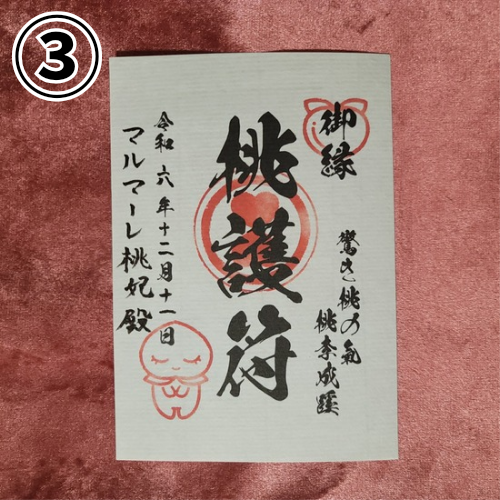 ③
御縁
驚き桃の氣
桃奉成蹊
桃護符
令和六年十二月十一日
マルマーレ桃妃殿